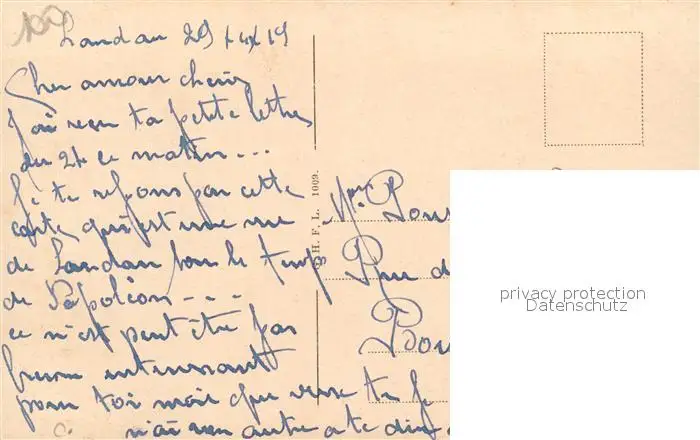 Landau 29/4/19
Cher amour chéri
J'ai reçu ta petite lettre
du 24 ce matin...
Je te réponds par cette
carte qui est une vue
de Landau sous le temps
de Napoléon...
ce n'est peut être pas
intéressant
pour toi mais que veux tu je
n'ai rien autre a te dire
H. F. L. 1009.
Mme Pons
Rue d
Bou
privacy protection
Datenschutz